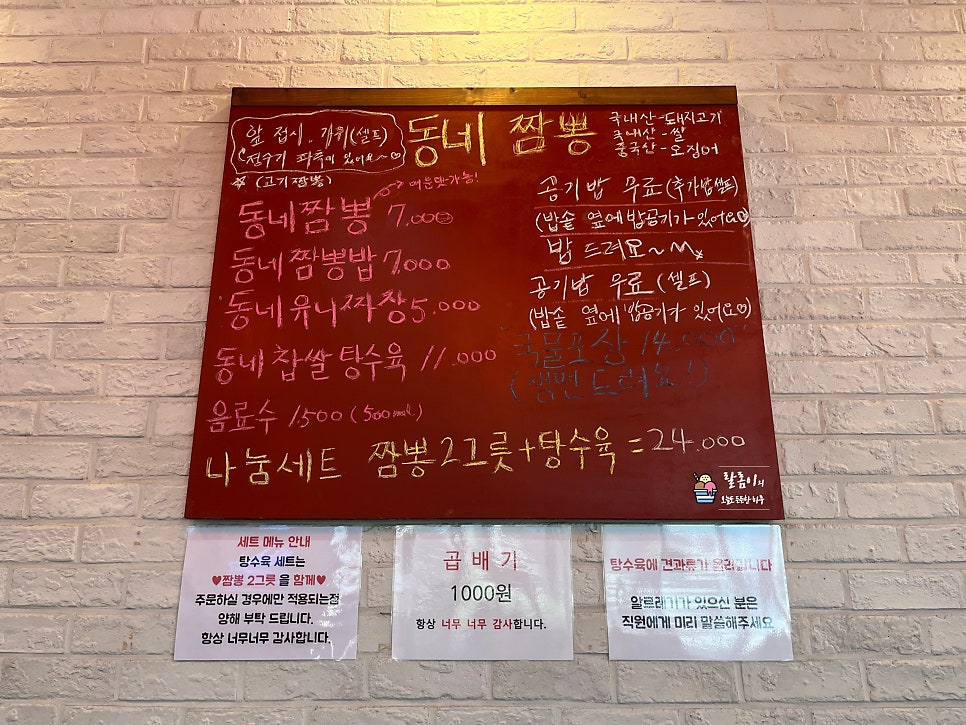 앞 접시, 가위(셀프)
정수기 좌측에 있어요~♡
동네 짬뽕
국내산-돼지고기
국내산-쌀
중국산-오징어
(고기짬뽕)
매운맛가능!
동네짬뽕 7.000
동네짬뽕밥 7.000
동네유니짜장 5.000
동네 찹쌀 탕수육 11.000
음료수 1.500 (500ml)
공기밥 무료(추가밥셀프)
(밥솥 옆에 밥공기가 있어요♡)
밥 드려요~
공기밥 무료(셀프)
(밥솥 옆에 밥공기가 있어요♡)
"국물포장 14.000"
(생면 드려요!)
나눔세트 짬뽕2그릇+탕수육=24.000
세트 메뉴 안내
탕수육 세트는
♥짬뽕 2그릇 을 함께♥
주문하실 경우에만 적용되는점
양해 부탁 드립니다.
항상 너무너무 감사합니다.
곱 배 기
1000원
항상 너무 너무 감사합니다.
탕수육에 견과류가 올라갑니다
알르레기가 있으신 분은
직원에게 미리 말씀해주세요